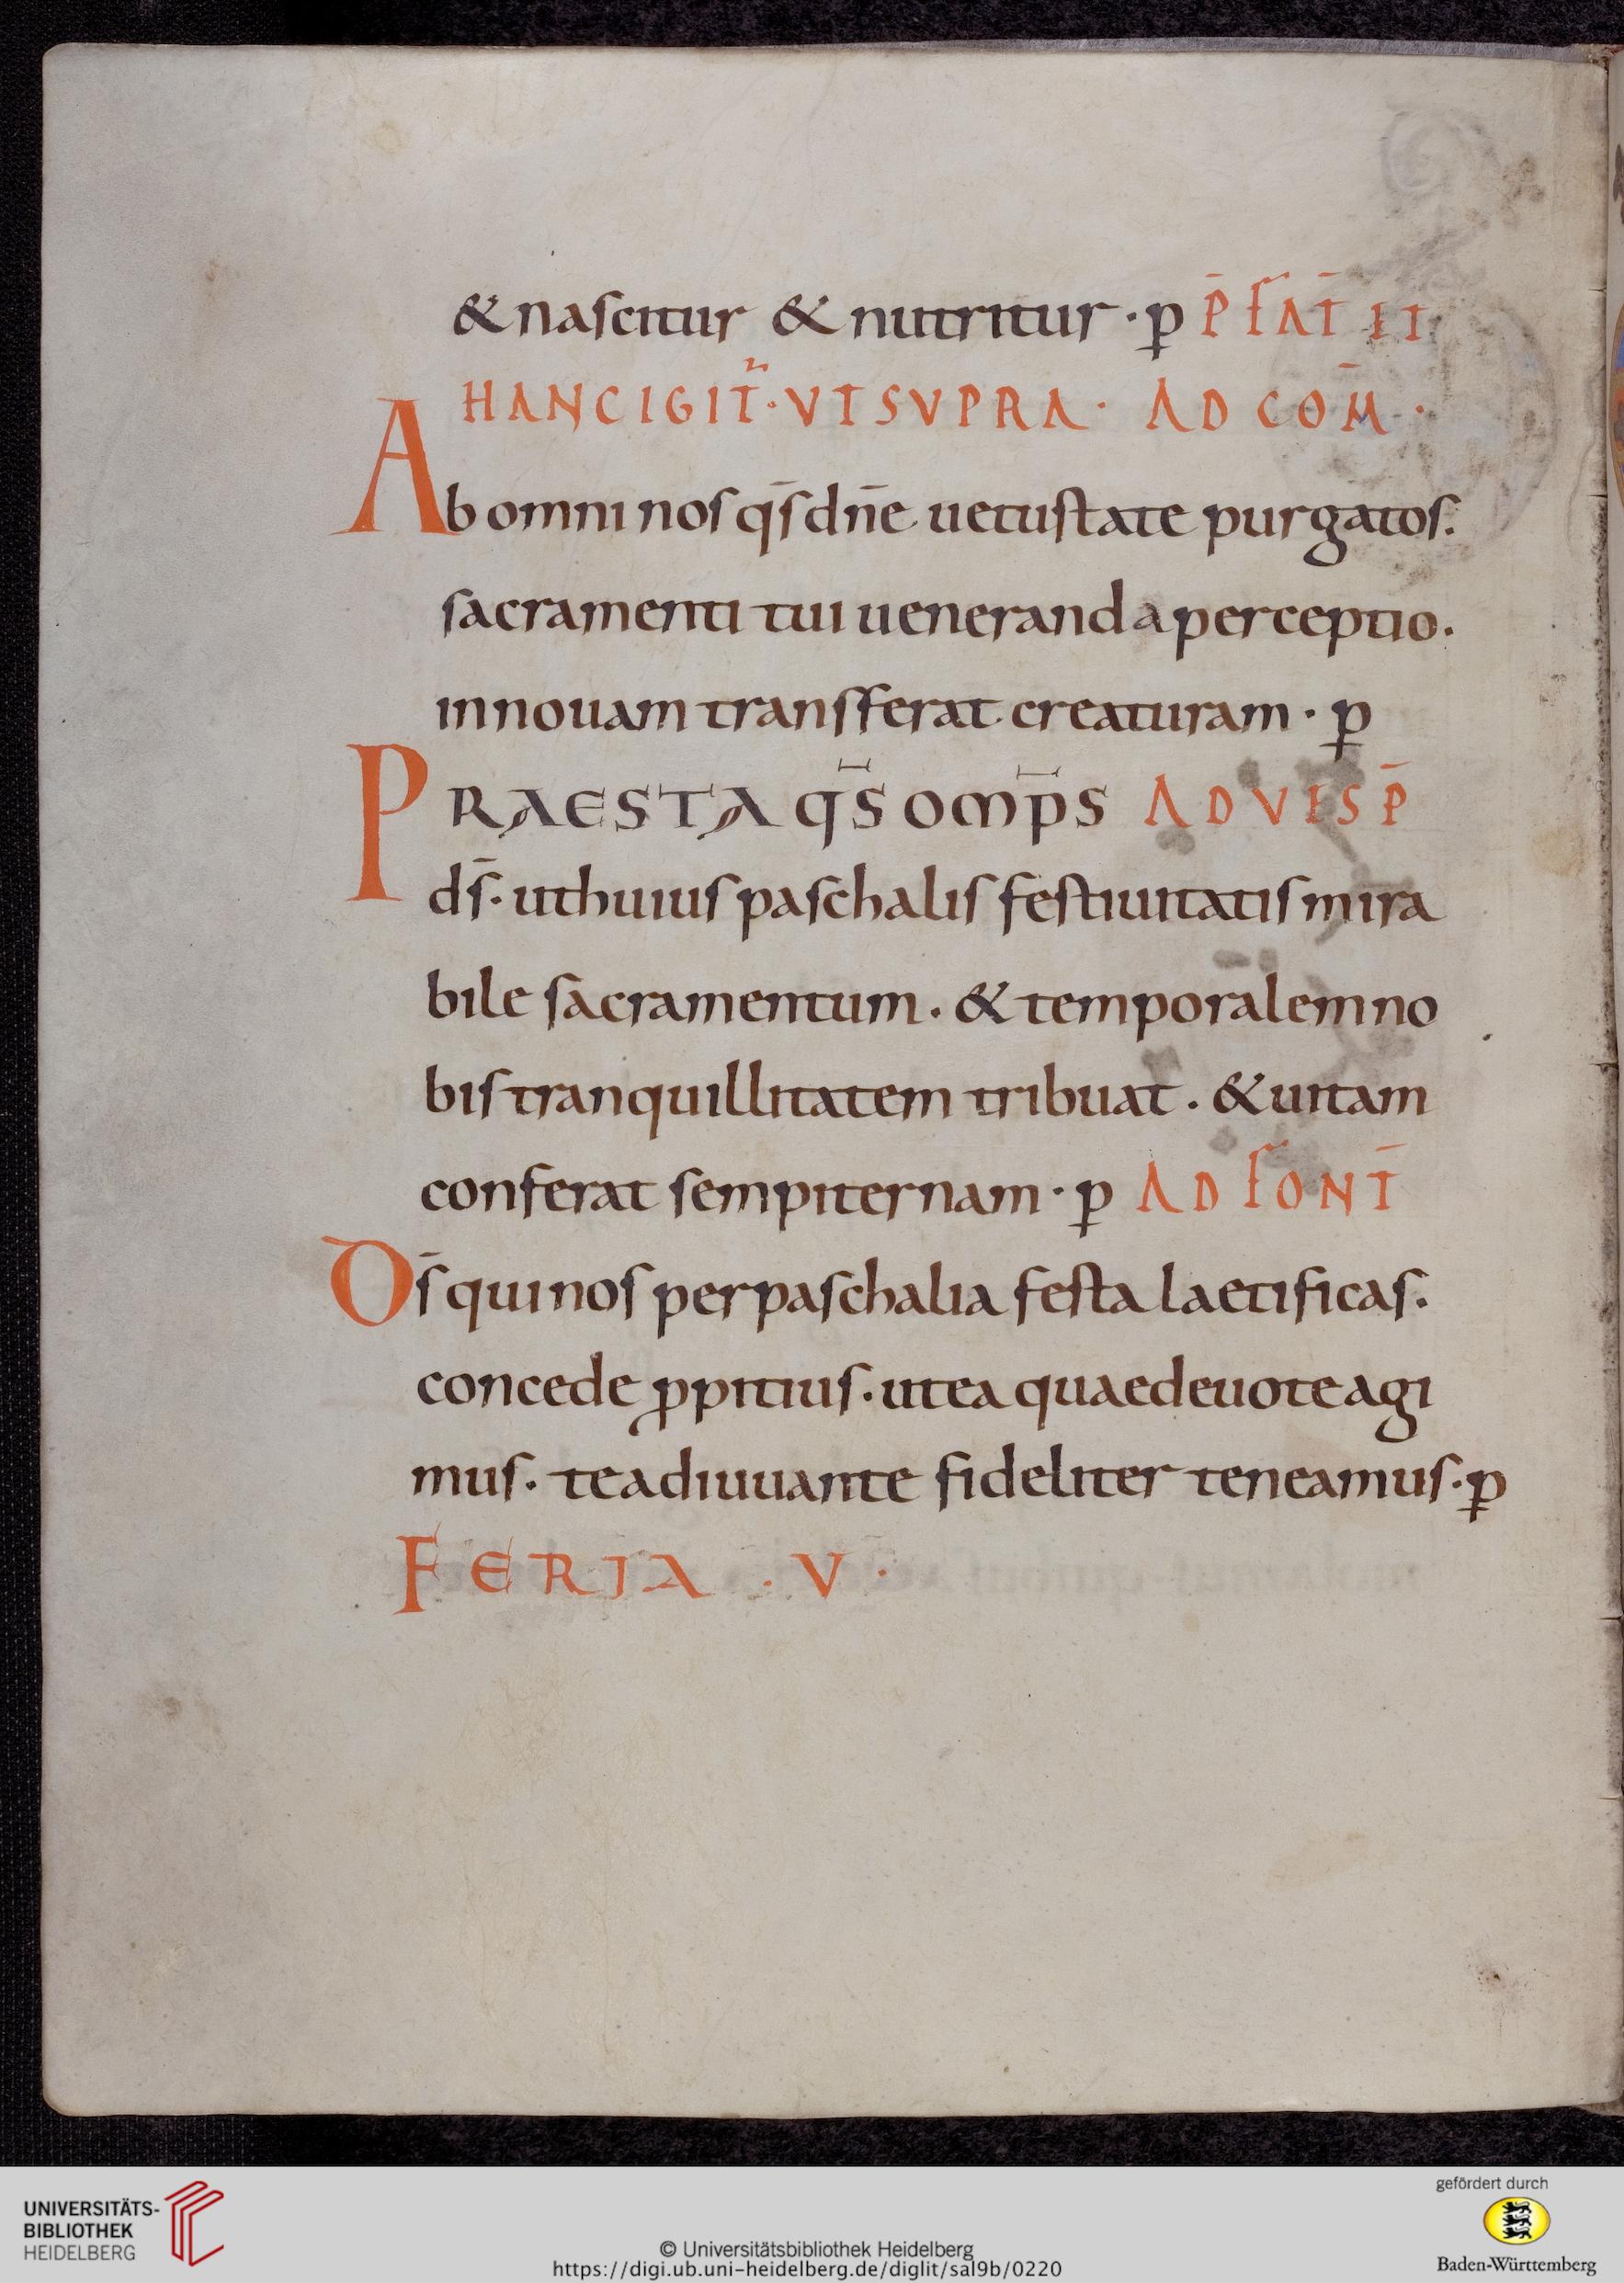 & nascitur & nutritur · ꝑ P̄FAT̄ II
HANC IGIT̄· VT SVPRA · AD COM̄ ·
Ab omni nos qs̄ dn̄e uetustate purgatos.
sacramenti tui ueneranda perceptio.
in nouam transferat creaturam · ꝑ
PRAESTA qs̄ omp̄s AD VESP̄
ds̄· ut huius paschalis festiuitatis mira
bile sacramentum. & temporalem no
bis tranquillitatem tribuat. & uitam
conferat sempiternam · ꝑ AD FONT̄
Ds̄ qui nos per paschalia festa laetificas.
concede ꝓpitius. ut ea quae deuote agi
mus. te adiuuante fideliter teneamus. ꝑ
FERIA · V ·
UNIVERSITÄTS-
BIBLIOTHEK
HEIDELBERG
© Universitätsbibliothek Heidelberg
https://digi.ub.uni-heidelberg.de/diglit/sal9b/0220
gefördert durch
Baden-Württemberg